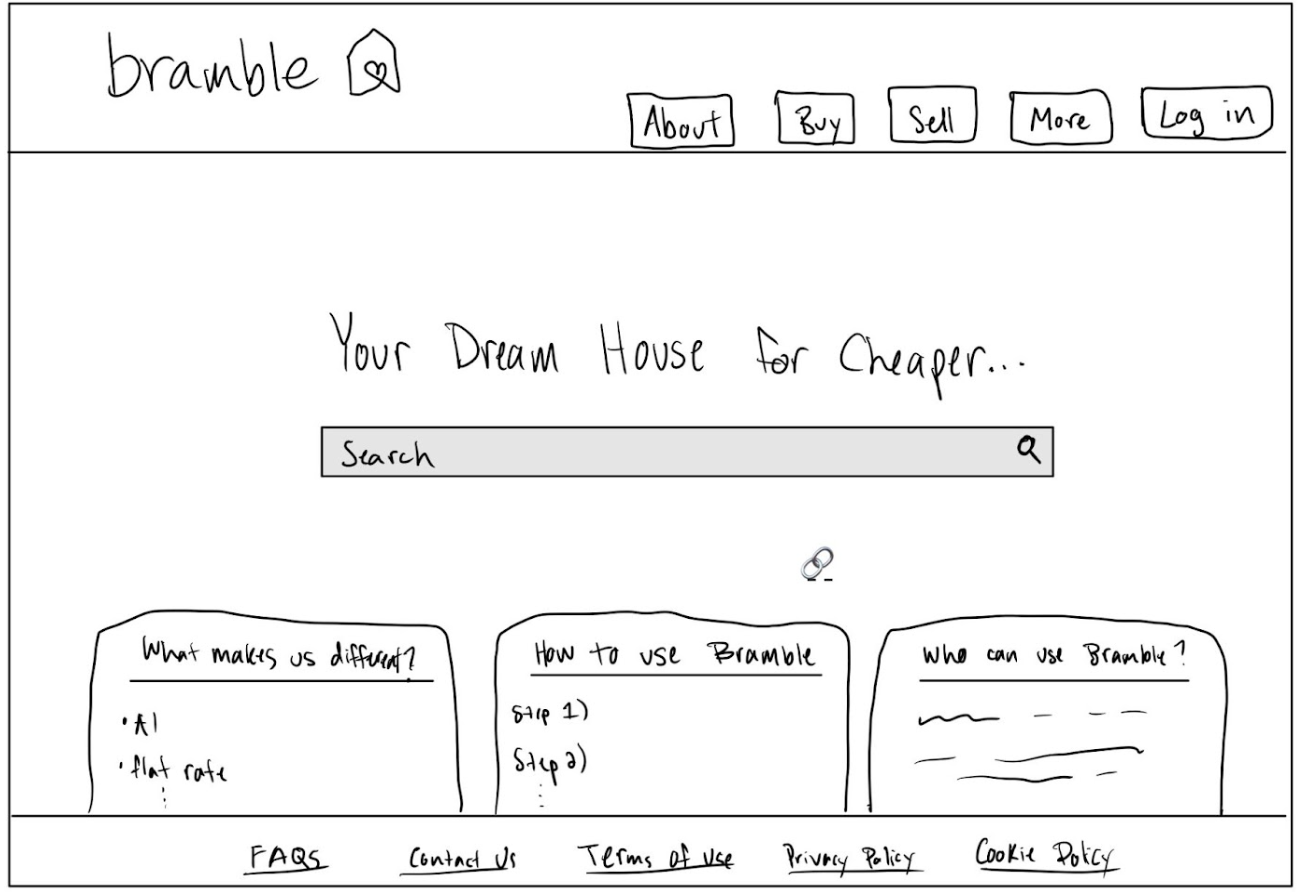 bramble
About Buy Sell More Log in
Your Dream House for Cheaper...
Search
What makes us different?
• AI
• flat rate
How to use Bramble
Step 1)
Step 2)
Who can use Bramble?
FAQS Contact Us Terms of Use Privacy Policy Cookie Policy